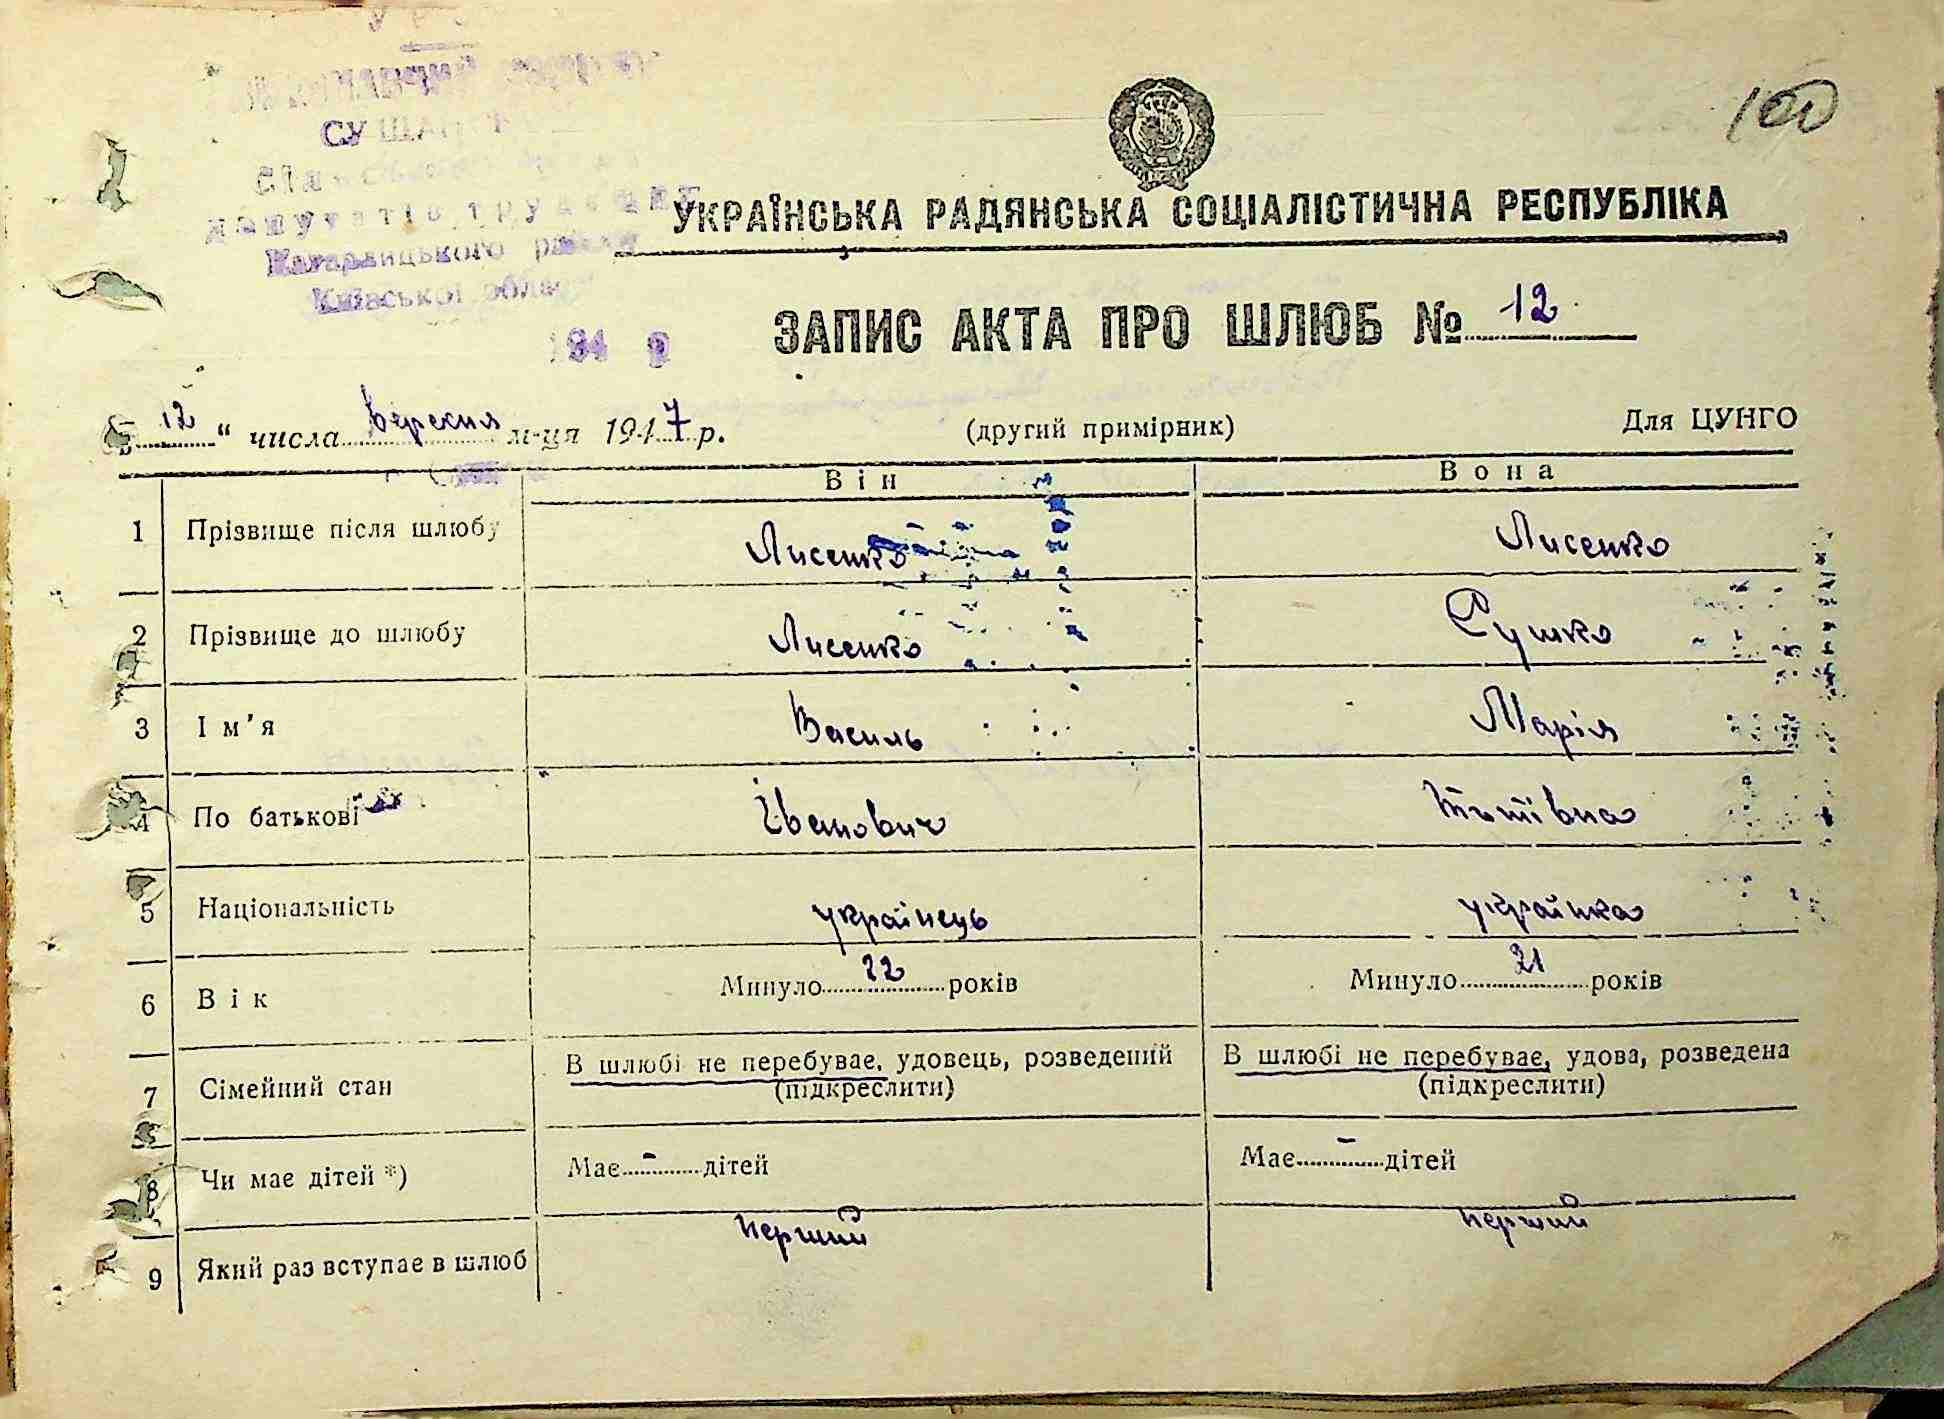 100
СУЩАН
депутатів трудящих
Кагарлицького району
Київської обла
194 р
УКРАЇНСЬКА РАДЯНСЬКА СОЦІАЛІСТИЧНА РЕСПУБЛІКА
ЗАПИС АКТА ПРО ШЛЮБ № 12
12 " числа вересня м-ця 1947 р.
(другий примірник)
Для ЦУНГО
Він
Вона
1 Прізвище після шлюбу Лисенко Лисенко
2 Прізвище до шлюбу Лисенко Сушко
3 Ім'я Василь Марія
4 По батькові Іванович Титівна
5 Національність українець українка
6 Вік Минуло 22 років Минуло 21 років
7 Сімейний стан В шлюбі не перебуває, удовець, розведений В шлюбі не перебуває, удова, розведена
(підкреслити) (підкреслити)
8 Чи має дітей *) Має - дітей Має - дітей
9 Який раз вступає в шлюб перший перший